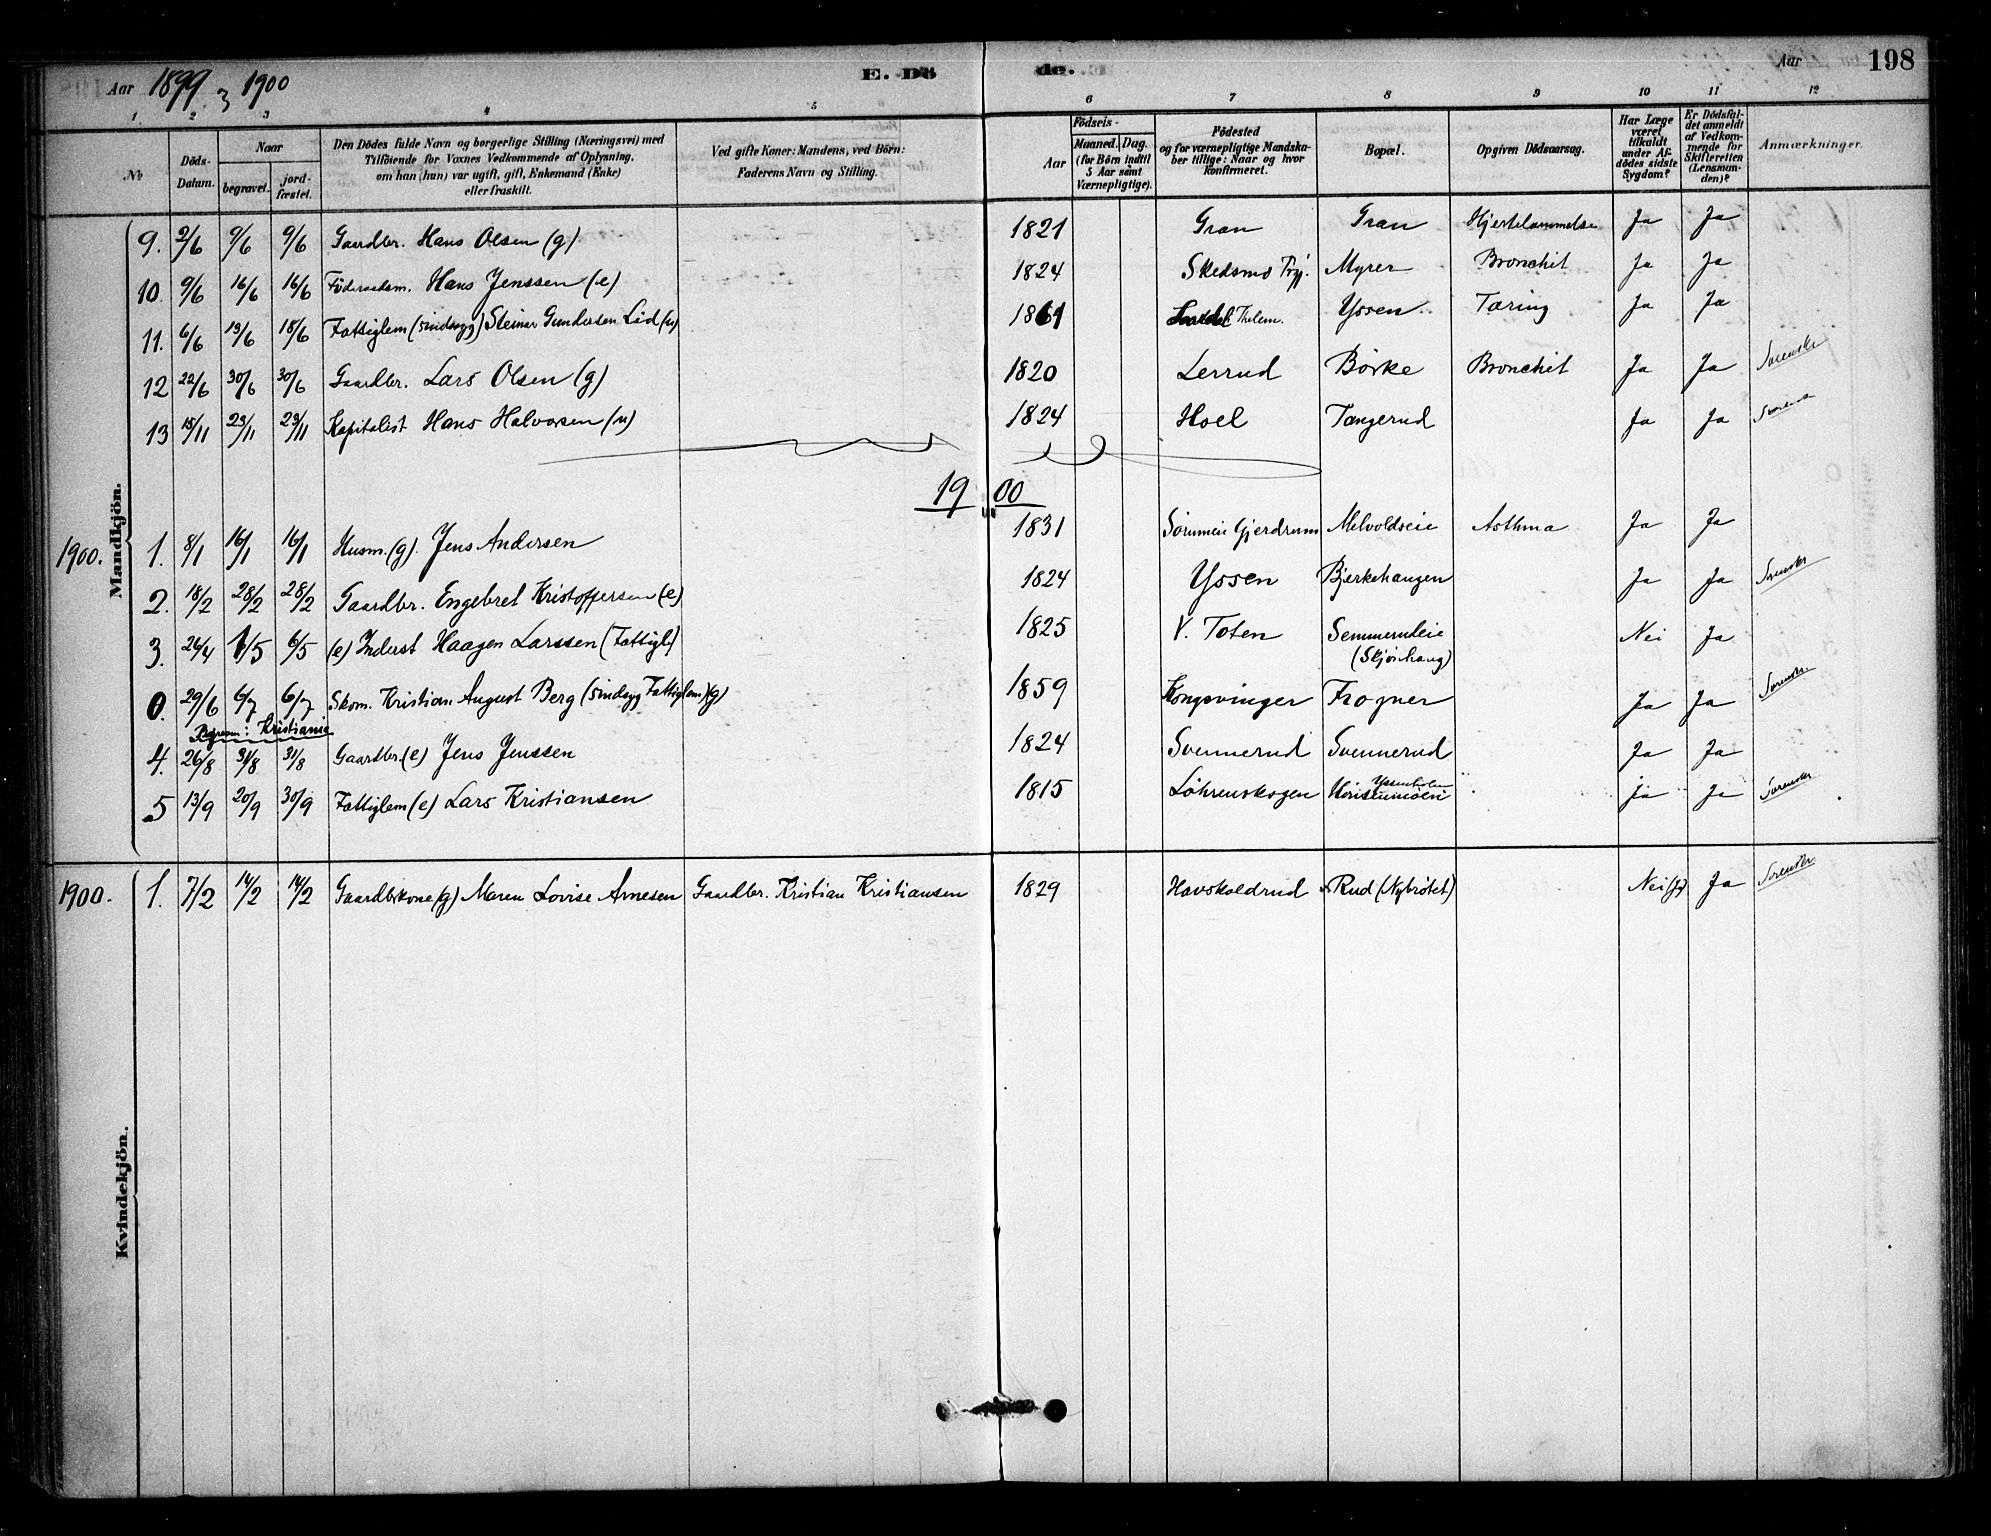 Aar 1899 & 1900 E. Dö de. Aar 198
1 2 3 4 5 6 7 8 9 10 11 12
No
Döds-Datum.
Naar
begravet.
jord-fæstet.
Den Dödes fulde Navn og borgerlige Stilling (Næringsvei) med
Tilföiende for Voxnes Vedkommende af Oplysning,
om han (hun) var ugift, gift, Enkemand (Enke)
eller fraskilt.
Ved gifte Koner: Mandens, ved Börn:
Faderens Navn og Stilling.
Födsels-
Aar
Maaned. Dag.
(for Börn indtil
5 Aar samt
Værnepligtige).
Födested
og for værnepligtige Mandska-
ber tillige: Naar og hvor
konfirmeret.
Bopæl.
Opgiven Dödsaarsag.
Har Læge
været
tilkaldt
under Af-
dödes sidste
Sygdom?
Er Dödsfal-
det anmeldt
af Vedkom-
mende for
Skifteretten
(Lensman-
den)?
Anmærkninger.
Mandkjön.
9. 2/6 9/6 9/6 Gaardbr. Hans Olsen (g) 1821 Gran Gran Hjertelammelse Ja Ja
10. 9/6 16/6 16/6 Föderaadsm. Hans Jenssen (e) 1824 Skedsmo Myrer Bronchit Ja Ja
11. 6/6 13/6 18/6 Fattiglem (sindssyg) Steinar Gundersen Lid (u) 1861 Thelem. Yssen Tæring Ja Ja
12 22/6 30/6 30/6 Gaardbr. Lars Olsen (g) 1820 Lerrud Börke Bronchit Ja Ja Sorenskr
13 15/11 23/11 23/11 Kapitalist Hans Halvorsen (u) 1824 Hoel Tangerud Ja Ja Sorenskr
1900
1900. 1. 8/1 16/1 16/1 Husm. (g). Jens Andersen 1831 Sörumeie Gjerdrum Melvoldseie Asthma Ja Ja
2. 18/2 28/2 28/2 Gaardbr. Engebret Kristoffersen (e) 1824 Yssen Bjerkehaugen Ja Ja Sorenskr
3. 26/4 6/5 6/5 (e) Inderst Haagen Larssen (Fattigl) 1825 V. Toten Semmerudeie
(Skjönhaug) Nei Ja
0. 29/6 6/7 6/7 Skom. Kristian August Berg (sindsyg Fattiglem) (g) 1859 Kongsvinger Frogner Ja Ja Sorenskr
Kristiania
4. 26/8 31/8 31/8 Gaardbr. (e) Jens Jenssen 1824 Svennerud Svennerud Ja Ja
5 13/9 20/9 30/9 Fattiglem (e) Lars Kristiansen 1815 Löhrenskogen ja Ja Sorenskr
Kvindekjön.
1900. 1. 7/2 14/2 14/2 Gaardbrkone (g) Maren Lovise Arnesen Gaardbr. Kristian Kristiansen 1829 Havskoldrud Rud (Nybrötet) Nei (Ja) Ja Sorenskr